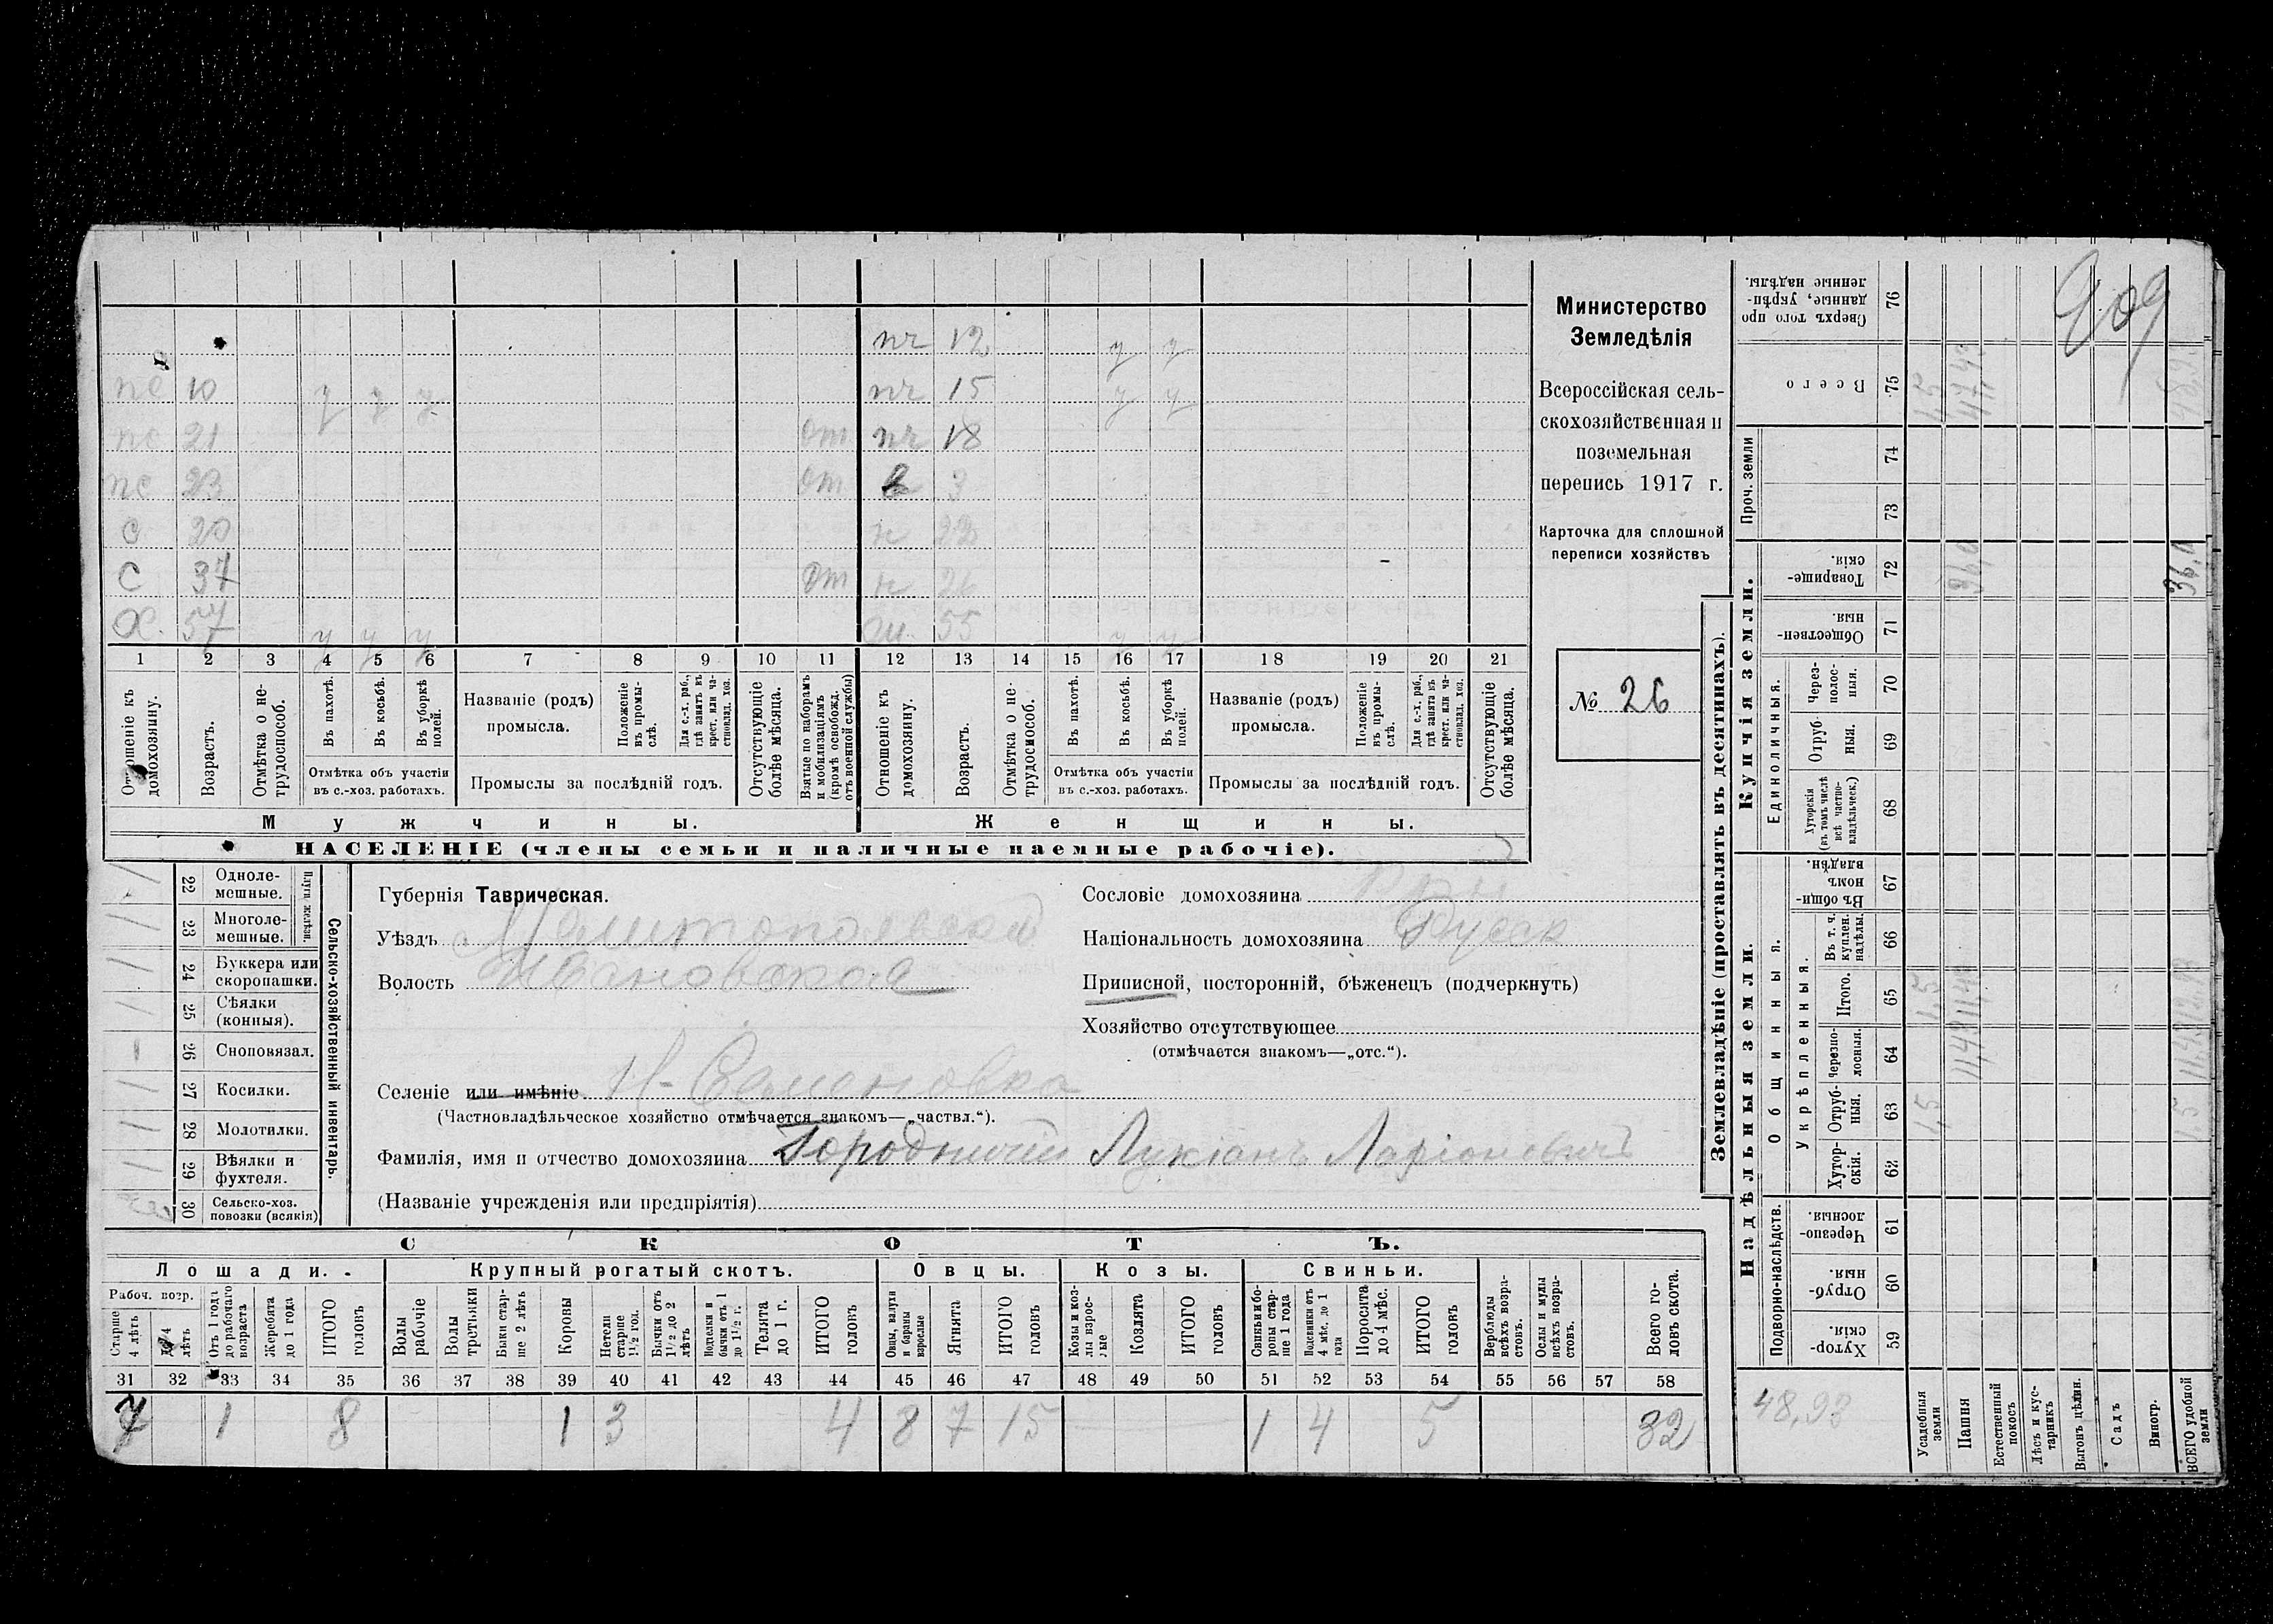 909
Министерство
Земледѣлія
Всероссійская сель-
скохозяйственная и
поземельная
перепись 1917 г.
Карточка для сплошной
переписи хозяйствъ
№ 26
пч 12 у у
пс 10 у у у пч 15 у у
пс 21 от пч 18
пс 23 от в 3
с 20 н 22
с 37 от н 26
Х. 57 у у у 55 у у
1 2 3 4 5 6 7 8 9 10 11 12 13 14 15 16 17 18 19 20 21
Отношеніе къ домохозяину.
Возрастъ.
Отмѣтка о не-трудоспособ.
Въ пахотѣ.
Въ косьбѣ.
Въ уборкѣ полей.
Отмѣтка объ участіи
въ с.-хоз. работахъ.
Названіе (родъ)
промысла.
Положеніе въ промы-слѣ.
Для с.-х. раб., гдѣ занятъ въ крест. или ча-стновлад. хоз.
Промыслы за послѣдній годъ.
Отсутствующіе болѣе мѣсяца.
Взятые по наборамъ и мобилизаціямъ (кромѣ освобожд. отъ военной службы)
Отношеніе къ домохозяину.
Возрастъ.
Отмѣтка о не-трудоспособ.
Въ пахотѣ.
Въ косьбѣ.
Въ уборкѣ полей.
Отмѣтка объ участіи
въ с.-хоз. работахъ.
Названіе (родъ)
промысла.
Положеніе въ промы-слѣ.
Для с.-х. раб., гдѣ занята въ крест. или ча-стновлад. хоз.
Промыслы за послѣдній годъ.
Отсутствующіе болѣе мѣсяца.
Мужчины. Женщины.
НАСЕЛЕНІЕ (члены семьи и наличные наемные рабочіе).
Сельско-хозяйственный инвентарь.
Плуги желѣзн.
22 Одноле-мешные.
23 Многоле-мешные.
24 Буккера или скоропашки.
25 Сѣялки (конныя).
26 Сноповязал.
27 Косилки.
28 Молотилки.
29 Вѣялки и фухтеля.
30 Сельско-хоз. повозки (всякія)
Губернія Таврическая.
Уѣздъ Мелитопольскій
Волость Ивановская
Селеніе или имѣніе Н-Семеновка
(Частновладѣльческое хозяйство отмѣчается знакомъ—„частвл.“).
Фамилія, имя и отчество домохозяина Городничій Лукіанъ Ларіоновичъ
(Названіе учрежденія или предпріятія)
Сословіе домохозяина
Національность домохозяина Русак
Приписной, посторонній, бѣженецъ (подчеркнуть)
Хозяйство отсутствующее
(отмѣчается знакомъ—„отс.“).
СКОТЪ.
Лошади. Крупный рогатый скотъ. Овцы. Козы. Свиньи.
Рабоч. возр.
Старше 4 лѣтъ
до 4 лѣтъ
Отъ 1 года до рабочаго возраста
Жеребята до 1 года
ИТОГО головъ
Волы рабочіе
Волы третьяки
Быки стар-ше 2 лѣтъ
Коровы
Нетели старше 1½ год.
Бычки отъ 1½ до 2 лѣтъ
Подтелки и бычки отъ 1 до 1½ г.
Телята до 1 г.
ИТОГО головъ
Овцы, валухи и бараны взрослые
Ягнята
ИТОГО головъ
Козы и коз-лы взрос-лые
Козлята
ИТОГО головъ
Свиньи и бо-ровы стар-ше 1 года
Подсвинки отъ 4 мѣс. до 1 года
Поросята до 4 мѣс.
ИТОГО головъ
Верблюды всѣхъ возра-стовъ.
Ослы и мулы всѣхъ возра-стовъ.
Всего го-ловъ скота.
31 32 33 34 35 36 37 38 39 40 41 42 43 44 45 46 47 48 49 50 51 52 53 54 55 56 57 58
7 1 8 1 3 4 8 7 15 1 4 5 32
Землевладѣніе (проставлять въ десятинахъ).
Купчія земли.
Надѣльныя земли.
76 Сверхъ того про-данные, укрѣп-ленные надѣлы.
75 Всего 1,5 47,43 48,93
Проч. земли
74
73
72 Товарище-скія. 36,0 36,0
71 Обществен-ныя.
Единоличныя.
70 Через-полос-ныя.
69 Отруб-ныя.
68 Хуторскія (въ томъ числѣ всѣ частно-владѣльческ.)
Общинныя.
67 Въ общин-номъ владѣн.
Укрѣпленныя.
66 Въ т. ч. куплен. надѣлы.
65 Итого. 1,5 11,43 12,93
64 Черезпо-лосныя. 11,43 11,43
63 Отруб-ныя. 1,5 1,5
62 Хутор-скія.
Подворно-наслѣдств.
61 Черезпо-лосныя.
60 Отруб-ныя.
59 Хутор-скія.
48,93
Усадебныя земли
Пашня
Естественный покосъ
Лѣсъ и кус-тарникъ
Выгонъ цѣлин.
Садъ
Виногр.
ВСЕГО удобной земли